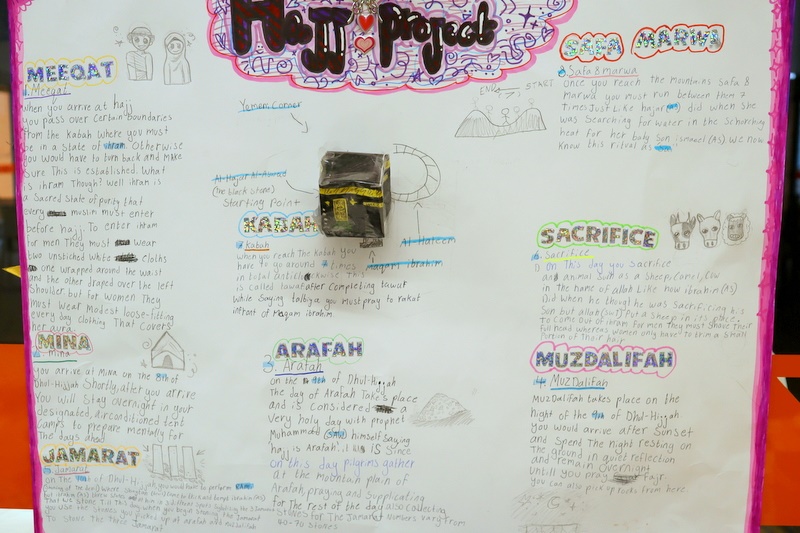 Hajj project
MEEQAT
Meeqat
when you arrive at hajj
you pass over certain boundaries
from the Kabah where you must
be in a state of ihram. Otherwise
you would have to turn back and make
sure This is established. What
is ihram Though? Well ihram is
a Sacred State of purity that
every muslim must enter
before hajj. To enter ihram
for men They must wear
two unstitched white cloths
one wrapped around the waist
and the other draped over the left
Shoulter but for women They
must Wear Modest loose-fitting
every day Clothing That covers
her aura.
MINA
Mina
you arrive at Mina on the 8th of
Dhul-Hijjah Shortly, after you arrive
You will Stay overnight in your
designated, Airconditioned tent
Camps to prepare mentally for
The days ahead
JAMARAT
Jamarat
on the of Dhul-H
to Stone the Jamarat
Yemen Corner
Al-Hajar Al-Aswad
(the black stone)
Starting Point
Al-Hateem
Maqam Ibrahim
KABAH
Kabah
when you reach The Kabah You
have to go around 7 times
in total anti kwise This
is called tawaf after completing tawaf
while Saying talbiya you must pray to rakat
infront of Maqam ibrahim.
ARAFAH
Arafah
on the of Dhul-Hijjah
The day of Arafah Takes place
and is considered a
very holy day with prophet
Muhammad (SAW) himself Saying
'hajj is Arafah'. IS Since
on this day pilgrims gather
at the mountain plain of
Arafah, praying and Supplicating
for the rest of the day also collecting
Stones for The Jamarat Numbers vary from
40-70 Stones
SAFA MARWA
Safa & marwa
once you reach the mountains Safa &
marwa you must run between them 7
Times Just Like hajar did when she
was Searching for water in the Schorring
heat for her baby son ismaeel (AS) We now
Know this ritual as
END START
SACRIFICE
Sacrifice
on This day you Sacrifice
an animal such as a Sheep, Camel, Cow
in the name of allah Like how ibrahim (AS)
Did when he thought he was Sacrificing his
Son but allah (swt) Put a sheep in its place.
To come out of ihram for men They must Shave Their
full head whereas women only have to trim a Small
of Their hair
MUZDALIFAH
MuzDalifah
MuzDalifah takes place on the
Night of the of Dhul-Hijjah
you would arrive after Sunset
and Spend The night resting on
The ground in quiet reflection
and remain Overnight
Untill you pray fajr
You can also pick up rocks from here.